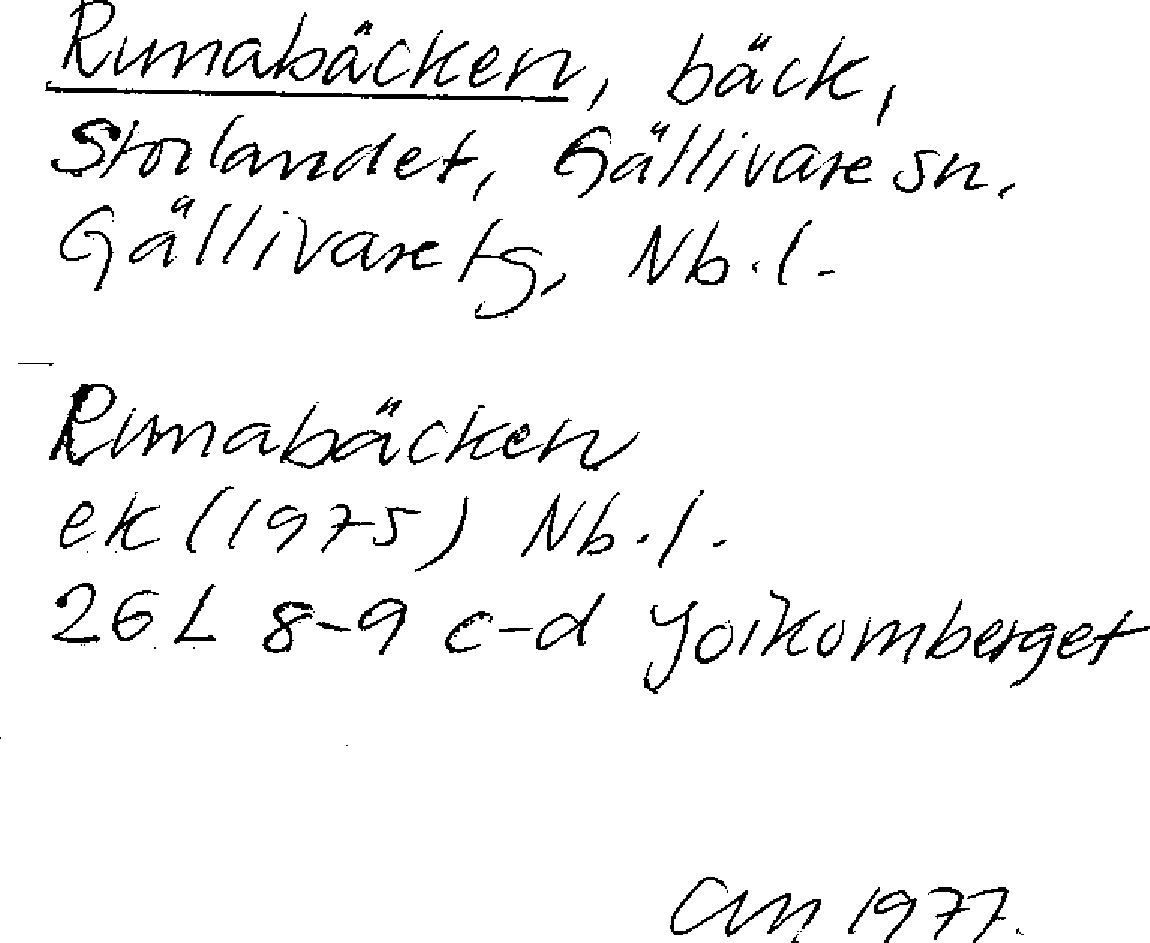 Rimabäcken, bäck,
Storlandet, Gällivare sn.
Gällivare tg, Nb.l.
Rimabäcken
ek (1975) Nb.l.
26 L 8-9 c-d Jorkomberget
1977.